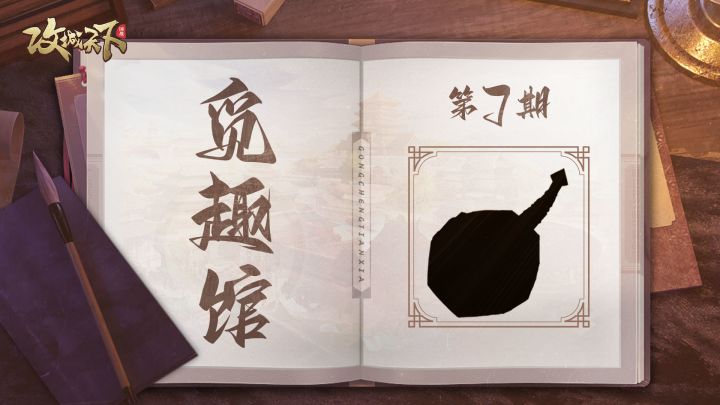 攻城天下
觅趣馆
GONGCHENGTIANXIA
第7期